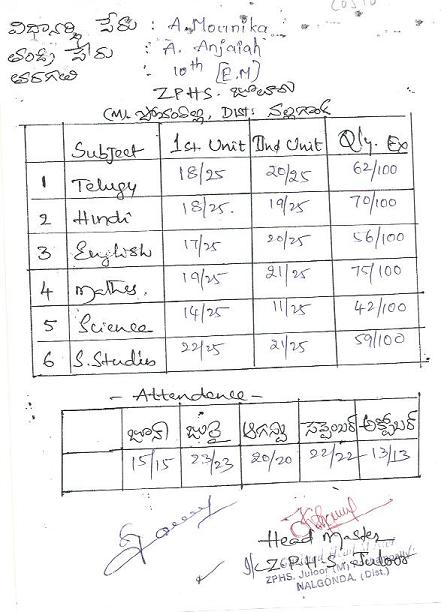 విద్యార్థి పేరు : A. Mounika
తండ్రి పేరు : A. Anjaiah
తరగతి : 10th [E.M]
ZPHS. జూలూరు
(M), DIST: నల్లగొండ
Subject 1st. Unit IInd Unit Qly. Ex
1 Telugu 18/25 20/25 62/100
2 Hindi 18/25. 19/25 70/100
3 English 17/25 20/25 56/100
4 Mathes. 19/25 21/25 75/100
5 Science 14/25 11/25 42/100
6 S.Studies 22/25 21/25 59/100
- Attendence -
జూన్ జులై ఆగస్టు సెప్టెంబర్ అక్టోబర్
15/15 23/23 20/20 22/22 13/13
Head Master
I/c Z.P.H.S. Juloor
ZPHS. Juloor (M)
NALGONDA. (Dist.)